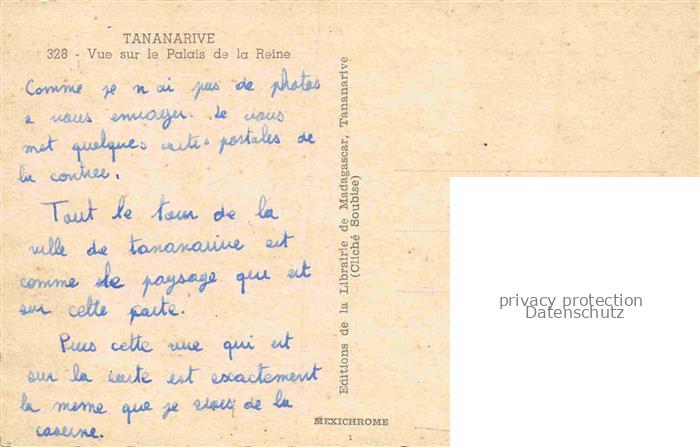 TANANARIVE
328 - Vue sur le Palais de la Reine
Comme je n ai pas de photos
a vous envoyer. Je vous
met quelques cartes postales de
la contree.
Tout le tour de la
ville de tananarive est
comme le paysage qui est
sur cette carte.
Puis cette vue qui est
sur la carte est exactement
la meme que je vois de la
caserne.
Editions de la Librairie de Madagascar, Tananarive
(Cliché Soubise)
MEXICHROME
privacy protection
Datenschutz